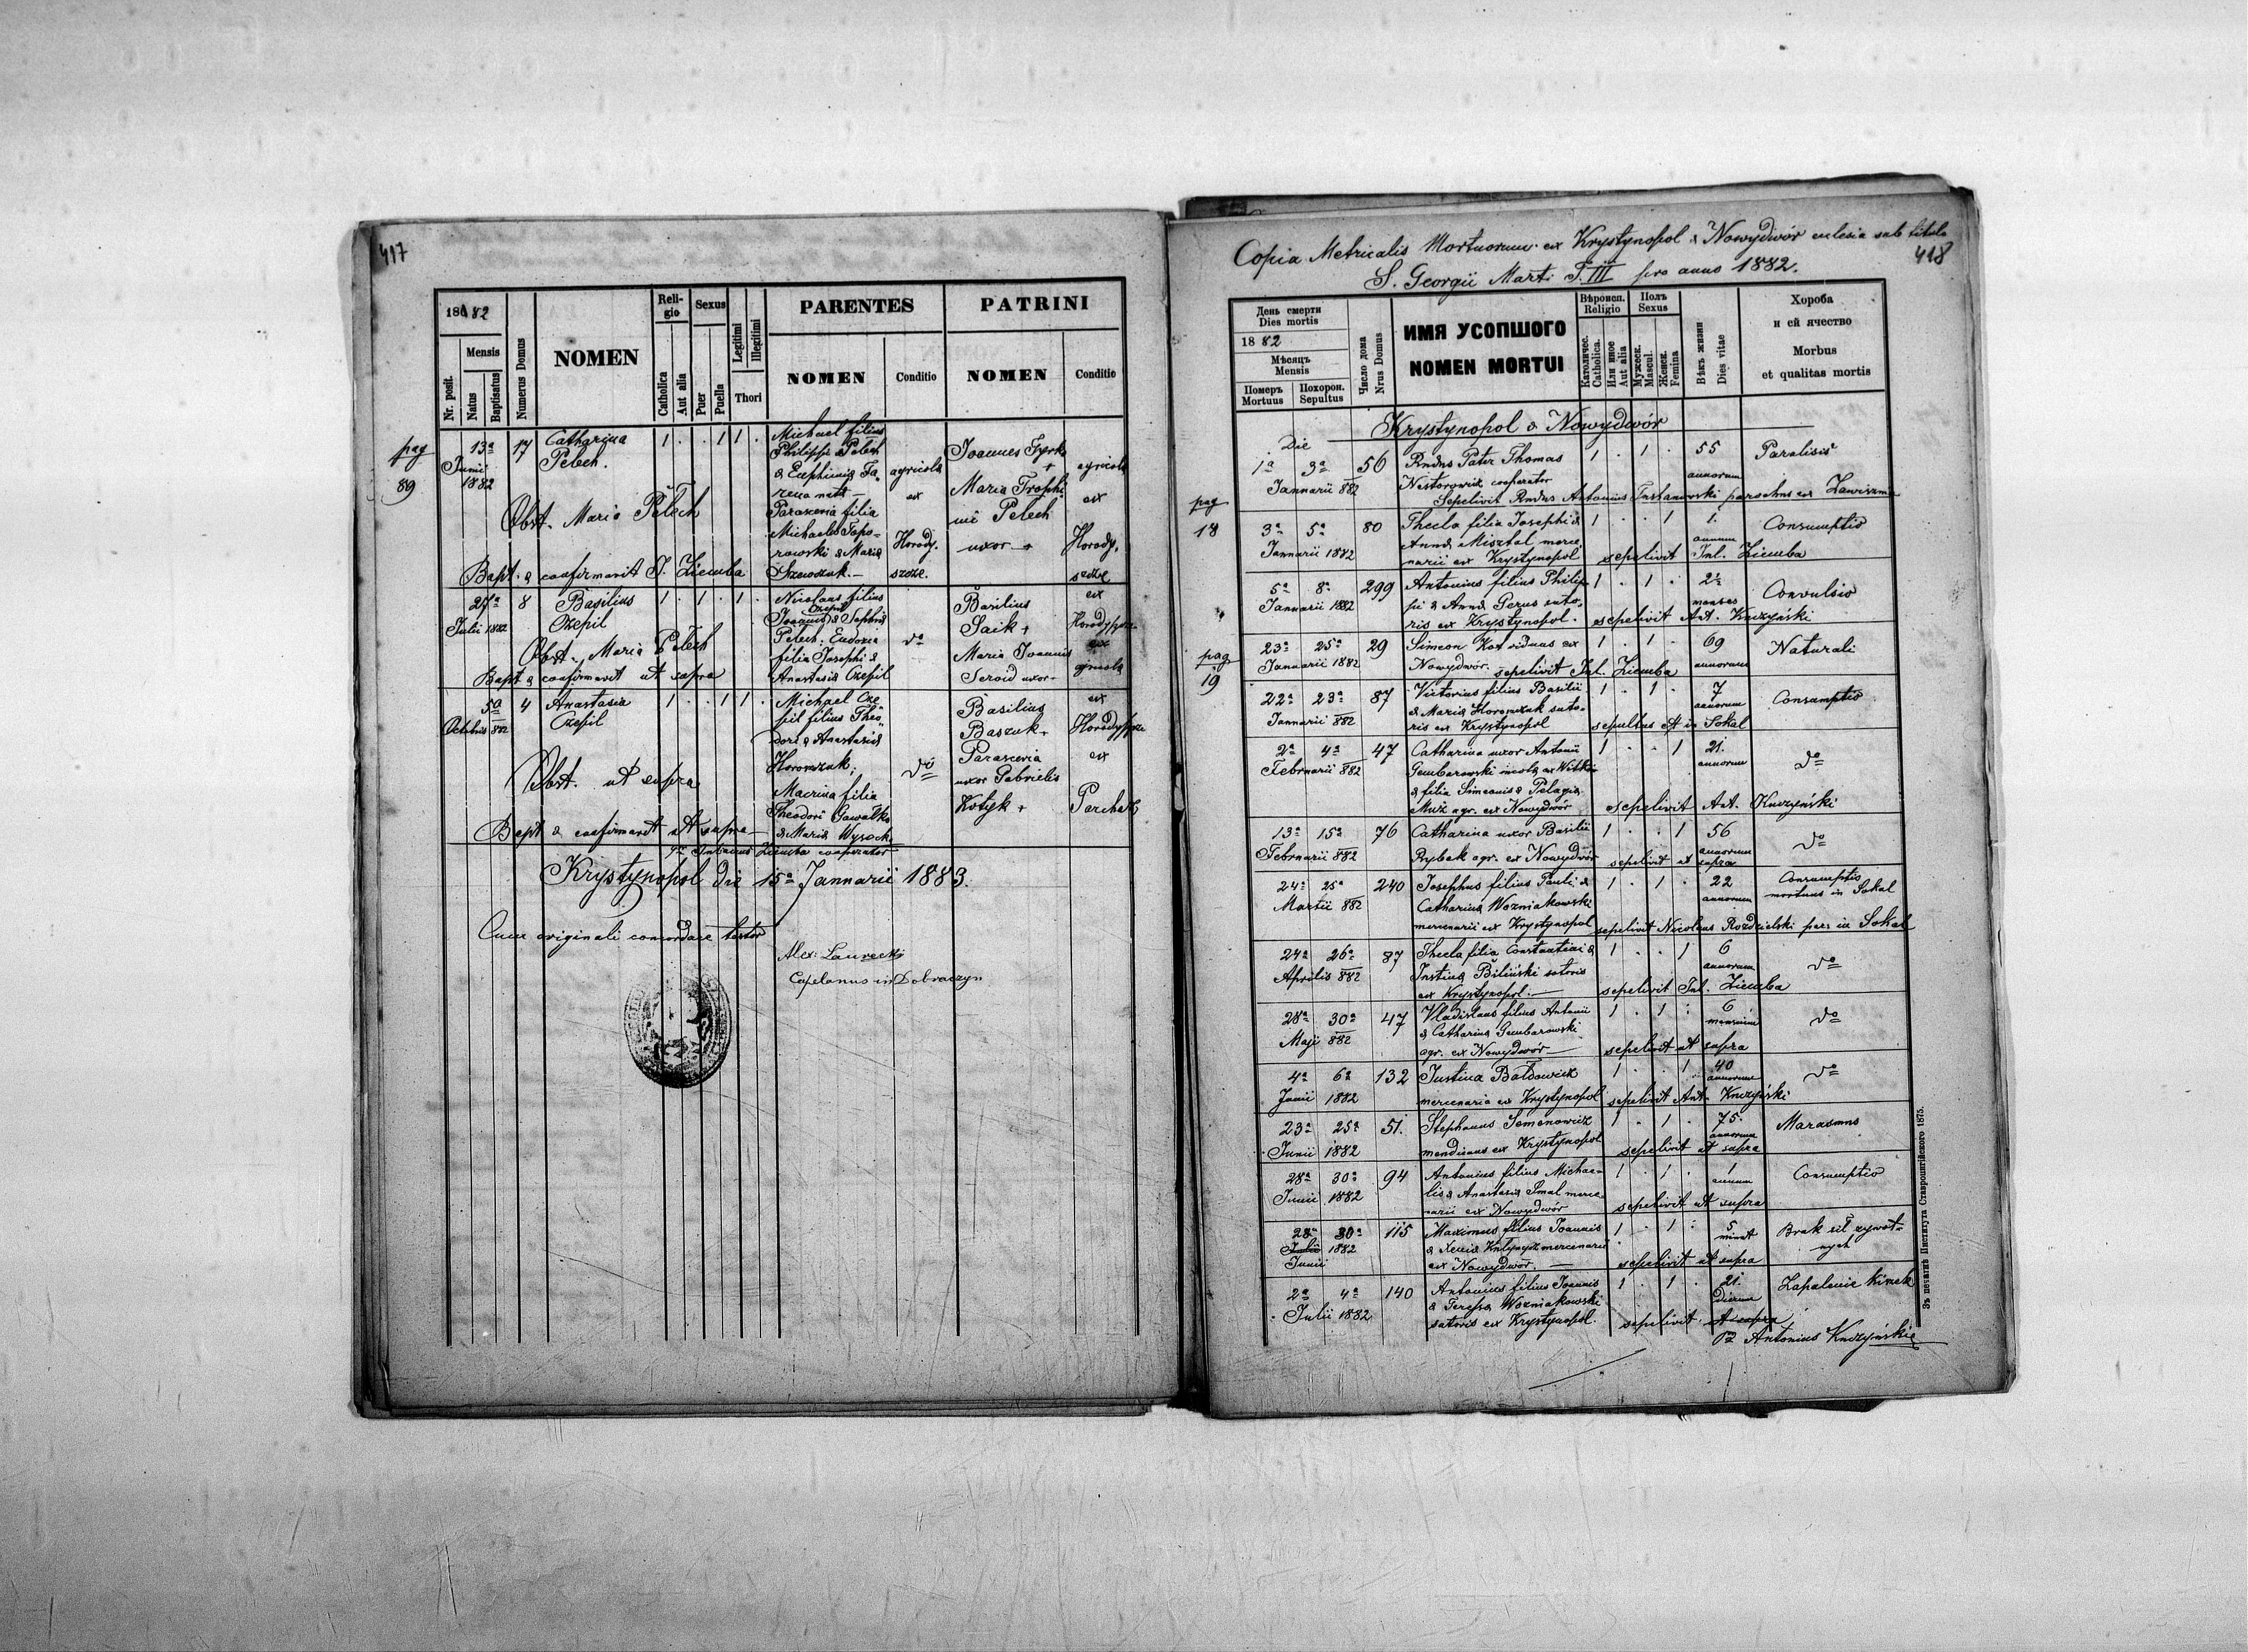 417
1882
Nr. posit.
Mensis
Natus
Baptisatus
Numerus Domus
NOMEN
Reli-
gio
Catholica
Aut alia
Sexus
Puer
Puella
Legitimi
Illegitimi
Thori
PARENTES
NOMEN
Conditio
PATRINI
NOMEN
Conditio
pag
89
13a
Junii
1882
17
Catharina
Pelech.
1 . . 1 1 .
Michael filius
Philippi Pelech
& Euphimia
Parascevia filia
Michaelis Topo-
rowski & Maria
Szewczuk.
agricola
ex
Horody-
szcze.
Joannes
+
Maria Trophi
mi Pelech
uxor +
agricola
ex
Horody.
Obst. Maria Pelech
Bapt. & confirmavit J. Ziemba
27a
Julii 1882
8
Basilius
Czepil
1 . 1 . 1 .
Nicolaus filius
Czepil
Joannis & Sophia
Pelech. Eudoxia
filia Josephi &
Anastasia Czepil
do
Basilius
Saik +
Maria Joannis
uxor
ex
ex
agricola
Obst. Maria Pelech
Bapt & confirmavit ut supra
5a
Octobris 882
4
Anastasia
Czepil
1 . . 1 1 .
Michael Cze-
pil filius Theo-
dori & Anastasia
Horonzuk;
Macrina filia
Theodori Gawalko
& Maria Wysocki
do
Basilius
Baszuk.
Parascevia
uxor Gabrielis
Kotyk +
ex
ex
Parchacz
Obst. ut supra
Bapt & confirmavit ut supra
Julianus Ziemba cooperator
Krystynopol die 15a Januarii 1883.
Cum originali concordare testor
Alex: Laurecki
Capelanus in Dobraczyn
Copia Metricalis Mortuorum ex Krystynopol & Nowydwór eclesia sub titulo
418
S. Georgii Mart. T. III pro anno 1882.
День смерти
Dies mortis
1882
Мѣсяцъ
Mensis
Померъ
Mortuus
Похорон.
Sepultus
Число дома
Nrus Domus
ИМЯ УСОПШОГО
NOMEN MORTUI
Вѣроисп.
Religio
Католичес.
Catholica.
Или иное
Aut alia
Полъ
Sexus
Мужеск.
Mascul.
Женск.
Femina
Вѣкъ жизни
Dies vitae
Хороба
и ей ячество
Morbus
et qualitas mortis
Krystynopol & Nowydwór
Die
1a 3a 56 Rndus Pater Thomas 1 . 1 . 55 Paralisis
Januarii 882 Nestorowicz cooperator annorum
Sepelivit Rndus Antonius parochus ex
pag
18
3a 5a 80 Thecla filia Josephi & 1 . . 1 1. Consumptio
Januarii 1882 Anna Misztal merce- annum
narii ex Krystynopol sepelivit Jul. Ziemba
5a 8a 299 Antonius filius Philip- 1 . 1 . 2½ Convulsio
Januarii 1882 pi & Anna Perus suto- menses
ris ex Krystynopol. sepelivit Ant. Knczyński
pag
19
23a 25a 29 Simeon Kot viduus ex 1 . 1 . 69 Naturali
Januarii 1882 Nowydwór. sepelivit Jul. Ziemba annorum
22a 23a 87 Victorius filius Basilii 1 . 1 . 7 Consumptio
Januarii 882 & Maria suto- annorum
ris ex Krystynopol sepultus est in Sokal
2a 4a 47 Catharina uxor Antonii 1 . . 1 21. do
Februarii 882 Gembarowski incola ex annorum
& filia Simeonis & Pelagia
agr. ex Nowydwór sepelivit Ant. Knczyński
13a 15a 76 Catharina uxor Basilii 1 . . 1 56 do
Februarii 882 Rybak agr. ex Nowydwór annorum
sepelivit ut supra
24a 25a 240 Josephus filius Pauli & 1 . 1 . 22 Consumptio
Martii 882 Catharina Wozniakowski annorum mortuus in Sokal
mercenarii ex Krystynopol sepelivit Nicolaus Rozdzielski par: in Sokal
24a 26a 87 Thecla filia Constantini & 1 . . 1 6 do
Aprilis 882 Justina Biliński sutoris annorum
ex Krystynopol. sepelivit Jul. Ziemba
28a 30a 47 Vladislaus filius Antonii 1 . 1 . 6 do
Maji 882 & Catharina Gembarowski mensium
agr. ex Nowydwór sepelivit ut supra
4a 6a 132 Justina 1 . . 1 40 do
Junii 1882 mercenaria ex Krystynopol annorum
sepelivit Ant. Knczyński
23a 25a 51. Stephanus Semenowicz 1 . 1 . 75. Marasmus
Junii 1882 mendicans ex Krystynopol annorum
sepelivit ut supra
28a 30a 94 Antonius filius Michae- 1 . 1 . 1 Consumptio
Junii 1882 lis & Anastasia Smal merce- annum
narii ex Nowydwór sepelivit ut supra
28a 30a 115 Maximus filius Joannis 1 . 1 . 5 Brak sił żywot-
Julii 1882 & Xenia mercenarii minut nych
Junii ex Nowydwór. sepelivit ut supra
2a 4a 140 Antonius filius Joannis 1 . 1 . 21. Zapalenie kiszek
Julii 1882 & Teresa Wozniakowski dierum
sutoris ex Krystynopol. sepelivit ut supra
Antonius Knczyński
Зъ печатнѣ Института Ставропигійского 1875.